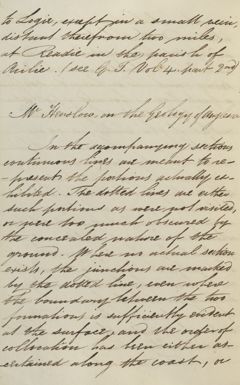 to Logie, except in a small vein,
distant therefrom two miles,
at Readie in the parish of
Airlie. (see G. T. Vol 4. part 2nd
Mr Henslow, on the Geology of Anglesea
In the accompanying sections
continuous lines are meant to re-
present the portions actually ex-
hibited. The dotted lines are either
such portions as were not visited,
or were too much obscured by
the concealed nature of the
ground. Where no actual section
exists, the junctions are marked
by the dotted line, even where
the boundary between the two
formations is sufficiently evident
at the surface, and the order of
collocation has been either as-
certained along the coast, or